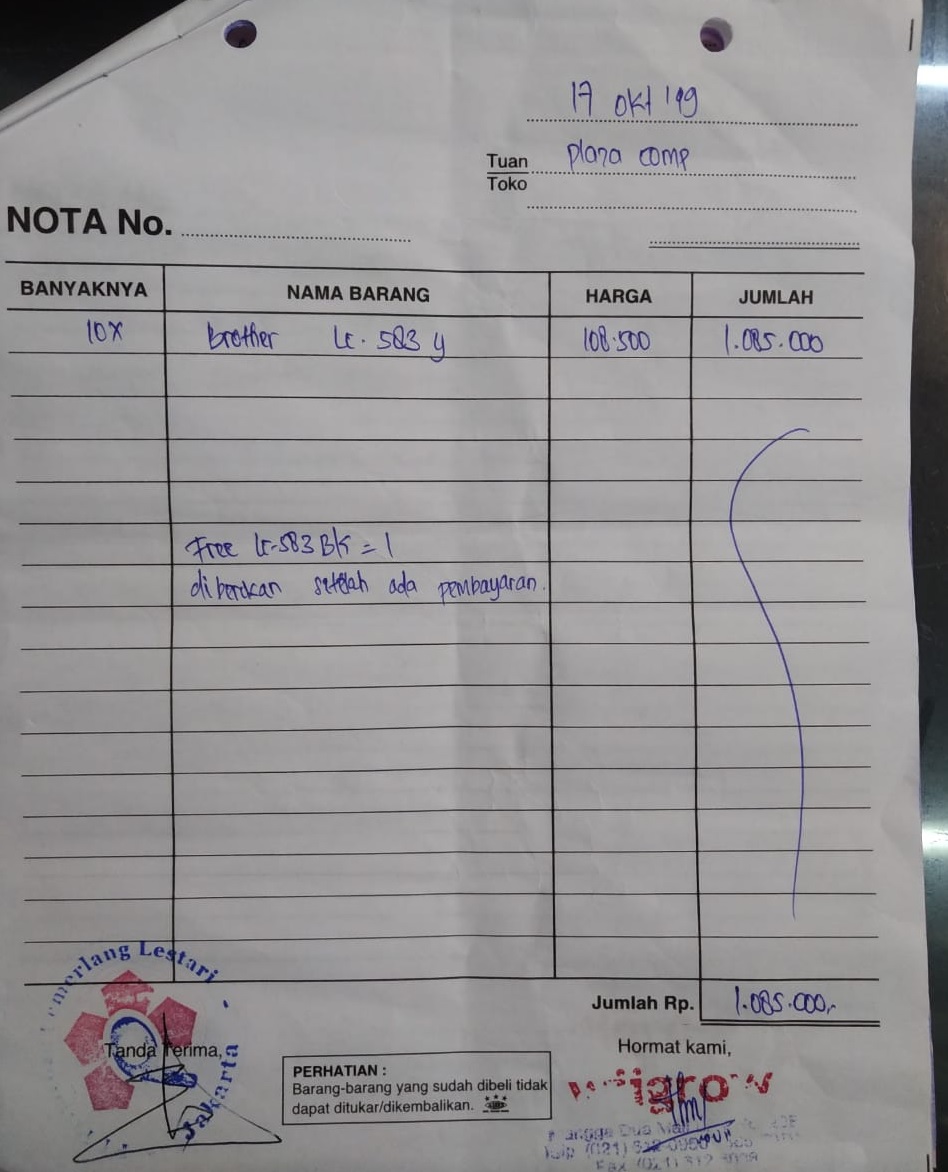 17 okt '19
Tuan plaza comp
Toko
NOTA No.
BANYAKNYA NAMA BARANG HARGA JUMLAH
10x brother Lc. 583 y 108.500 1.085.000
Free Lc-583 BK = 1
diberikan setelah ada pembayaran.
Jumlah Rp. 1.085.000,-
emerlang Lestari
Jakarta
Tanda Terima,
PERHATIAN :
Barang-barang yang sudah dibeli tidak
dapat ditukar/dikembalikan.
Hormat kami,
Dua
(021)
Fax (021) 612